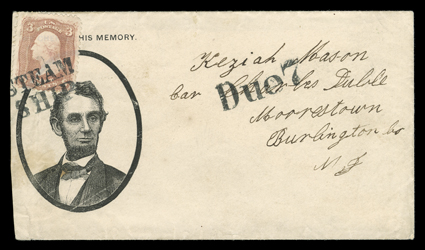 3
HIS MEMORY.
STEAM
SHIP
Due 7
Keziah Mason
Car Charles Duble
Moorestown
Burlington Co
N J